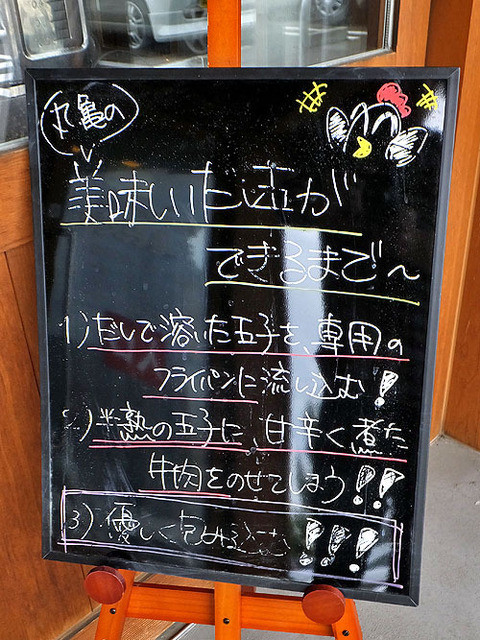 丸亀の
美味しいだし玉が
できるまで〜
1)だしで溶いた玉子を、専用の
フライパンに流し込む!
2)半熟の玉子に、甘辛く煮た
牛肉をのせてしまう!!
3)優しく!!!